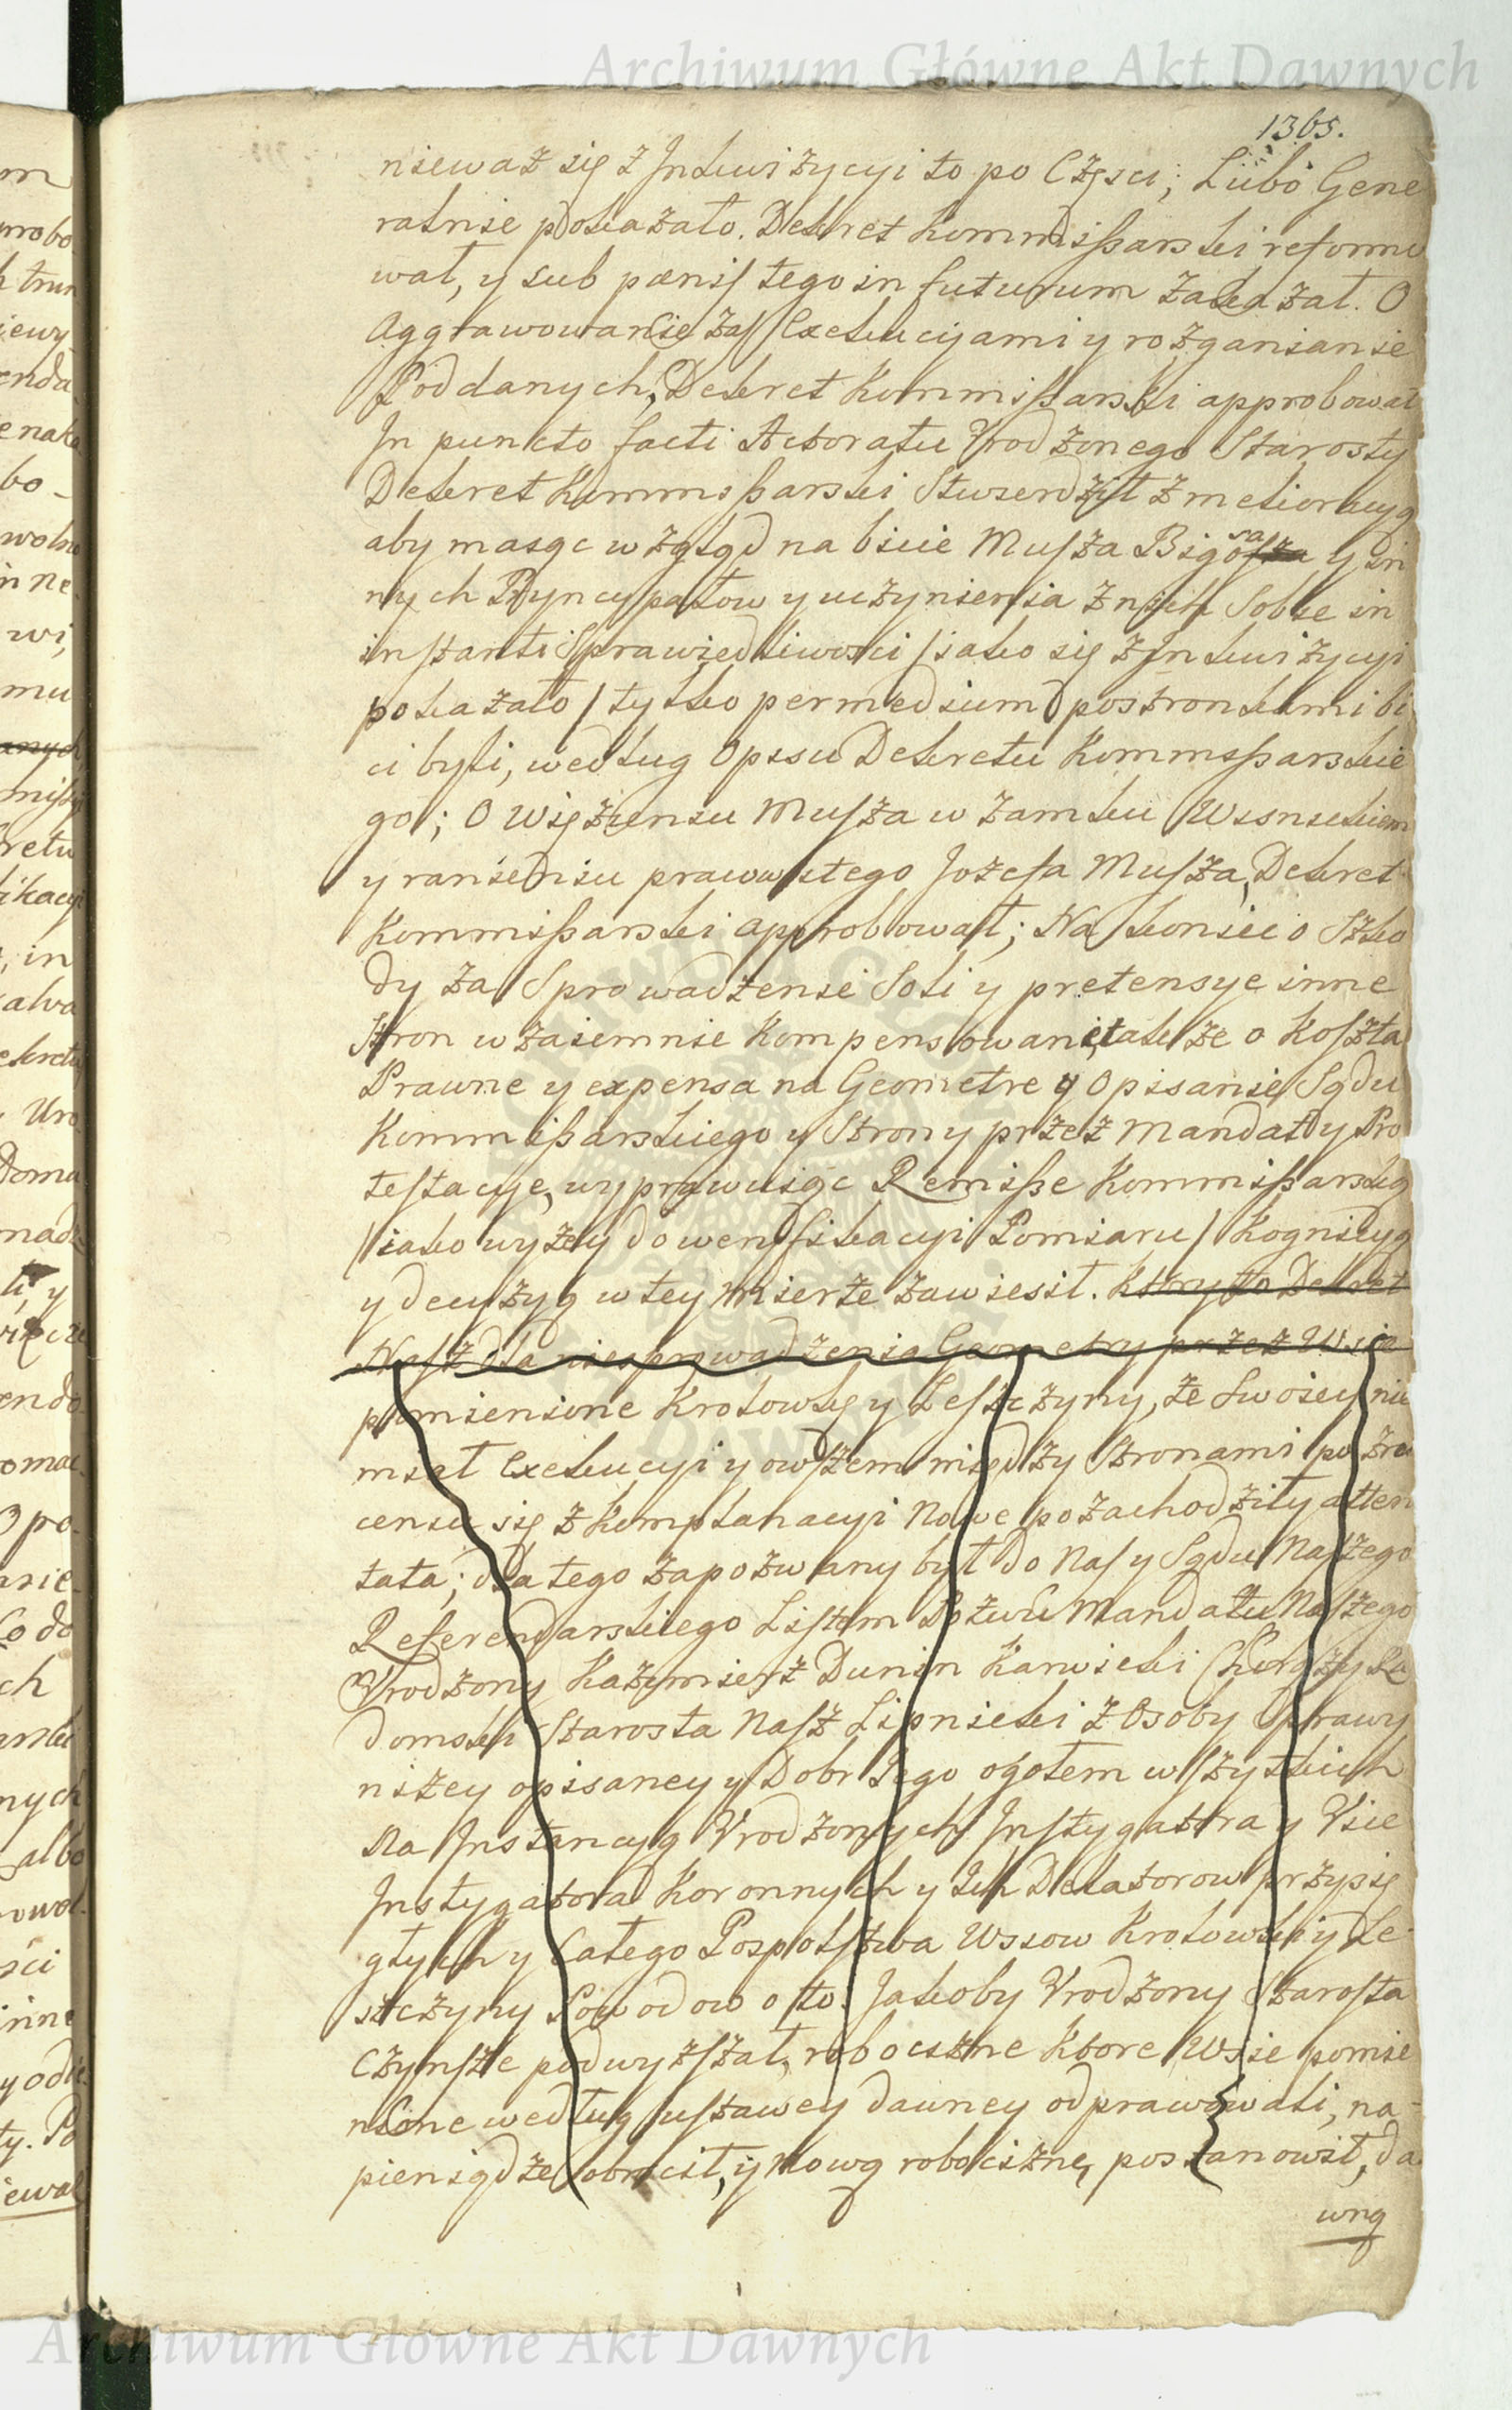 Archiwum Główne Akt Dawnych
1365.
nieważ się z Inkwizycyi to po Częsci; Lubo Gene
ralnie pokazało. Dekret Kommissarski reformo
wał, y sub pænis tego in futurum zakazał. O
Aggrawowanie zaś Exekucyjami y rozganianie
Poddanych, Dekret Kommissarski approbował
In puncto facti Actoratu Vrodzonego Starosty
Dekret Kommissarski Stwierdził z melioracyą
aby maiąc wzgląd na bicie Musza Bigosza sa y in
nych Pryncypałow y uczynienia z nich Sobie in
instanti Sprawiedliwości / iako się z Inkwizycyi
pokazało / tylko per medium postronkami bi
ci byli, według Opisu Dekretu Kommissarskie
go; O Więzieniu Musza w Zamku Wisnickiem
y ranieniu prawowitego Jozefa Musza, Dekret
Kommissarski approbował; Na koniec o Szko
dy za Sprowadzenie Soli y pretensye inne
Stron wzaiemnie Kompensowane, także o Koszta
Prawne y expensa na Geometre y Opisanie Sądu
Kommissarskiego y Strony przez Mandaty Pro
testacye, wyprawuiąc Remisse Kommissarską
/ iako wyżey do weryfikacyi Pomiaru / Kognicyą
y decyzyą w tey mierze zawiesił. Ktory to Dekret
Nasz dla niesprowadzenia Geometry przez Wsie
pomienione Krotowkę y Leszczyny, że swoiey nie
miał Exekucyi y owszem między Stronami po zrzu
ceniu się z Komplanacyi Nowe pozachodziły atten
tata; dla tego zapozwany był do Nas y Sądu Naszego
Referendarskiego Listem Pozwu Mandatu Naszego
Vrodzony Kazimierz Dunin Karwicki Chorąży Ra
domski Starosta Nasz Lipnicki z Osoby Sprawy
niżey opisaney y Dobr Jego ogołem wszytkich
Na Instancyą Vrodzonych Instygatora y Vice
Instygatora Koronnych y Ich Delatorow przysię
głych y Całego Pospolstwa Wsiow Krotowki y Le-
szczyny Powodow o to: Jakoby Vrodzony Starosta
Czynsze podwyższał, robocizne Ktore Wsie pomie
nione według ustawey dawney odprawowali, na-
pieniądze obrocił, y Nową robociznę postanowił, da
wną
Archiwum Główne Akt Dawnych